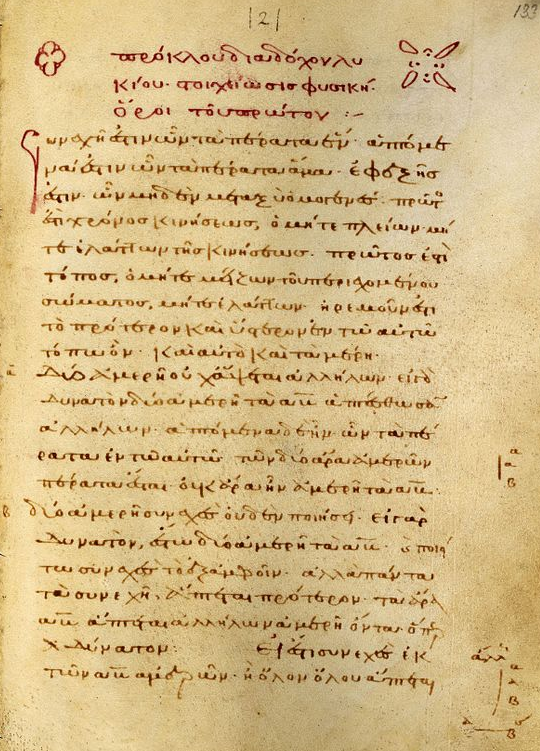 121
133
πρόκλου διαδόχου λυ
κίου· στοιχείωσις φυσική·
ὅροι τοῦ πρώτου :-
Συνεχῆ ἐστιν ὧν τὰ πέρατα ἕν· ἁπτόμε
να ἐστιν ὧν τὰ πέρατα ἅμα· ἐφεξῆς
ἐστιν· ὧν μηδὲν μεταξὺ ὁμογενές· πρῶτος
ἐστι χρόνος κινήσεως, ὁ μήτε πλείων μή
τε ἐλάττων τῆς κινήσεως· πρῶτος ἐστὶ
τόπος, ὁ μήτε μείζων τοῦ περιεχομένου
σώματος, μήτε ἐλάττων· ἠρεμοῦν ἐστι
τὸ πρότερον καὶ ὕστερον ἐν τῶ αὐτῶ
τόπω ὄν· καὶ αὐτὸ καὶ τὰ μέρη·
α Δύο ἀμερῆ οὐχ ἅψεται ἀλλήλων· εἰ γὰρ
δυνατὸν δύο ἀμερῆ τὰ αβ ἁπτέσθωσαν
ἀλλήλων· ἁπτόμενα δὲ ἦν ὧν τὰ πέ
ρατα ἐν τῶ αὐτῶ τῶν δύο ἄρα ἀμερῶν
πέρατα ἔσται· οὐκ ἄρα ἦν ἀμερῆ τὰ αβ·
β δύο ἀμερῆ συνεχὲς οὐδὲν ποιήσει· εἰ γὰρ
δυνατὸν, ἔστω δύο ἀμερῆ τὰ αβ· καὶ ποιεί
τω συνεχὲς τὸ ἐξ ἀμφοῖν· ἀλλὰ πάντα
τὰ συνεχῆ, ἅπτεται πρότερον· τὰ ἄρα
αβ ἅπτεται ἀλλήλων ἀμερῆ ὄντα· ὅπερ
ἀδύνατον· Εἰ ἔστι συνεχὲς ἐκ
τῶν αβ ἀμερῶν· ἢ ὅλον ὅλου ἅπτεται
α
β
α
β